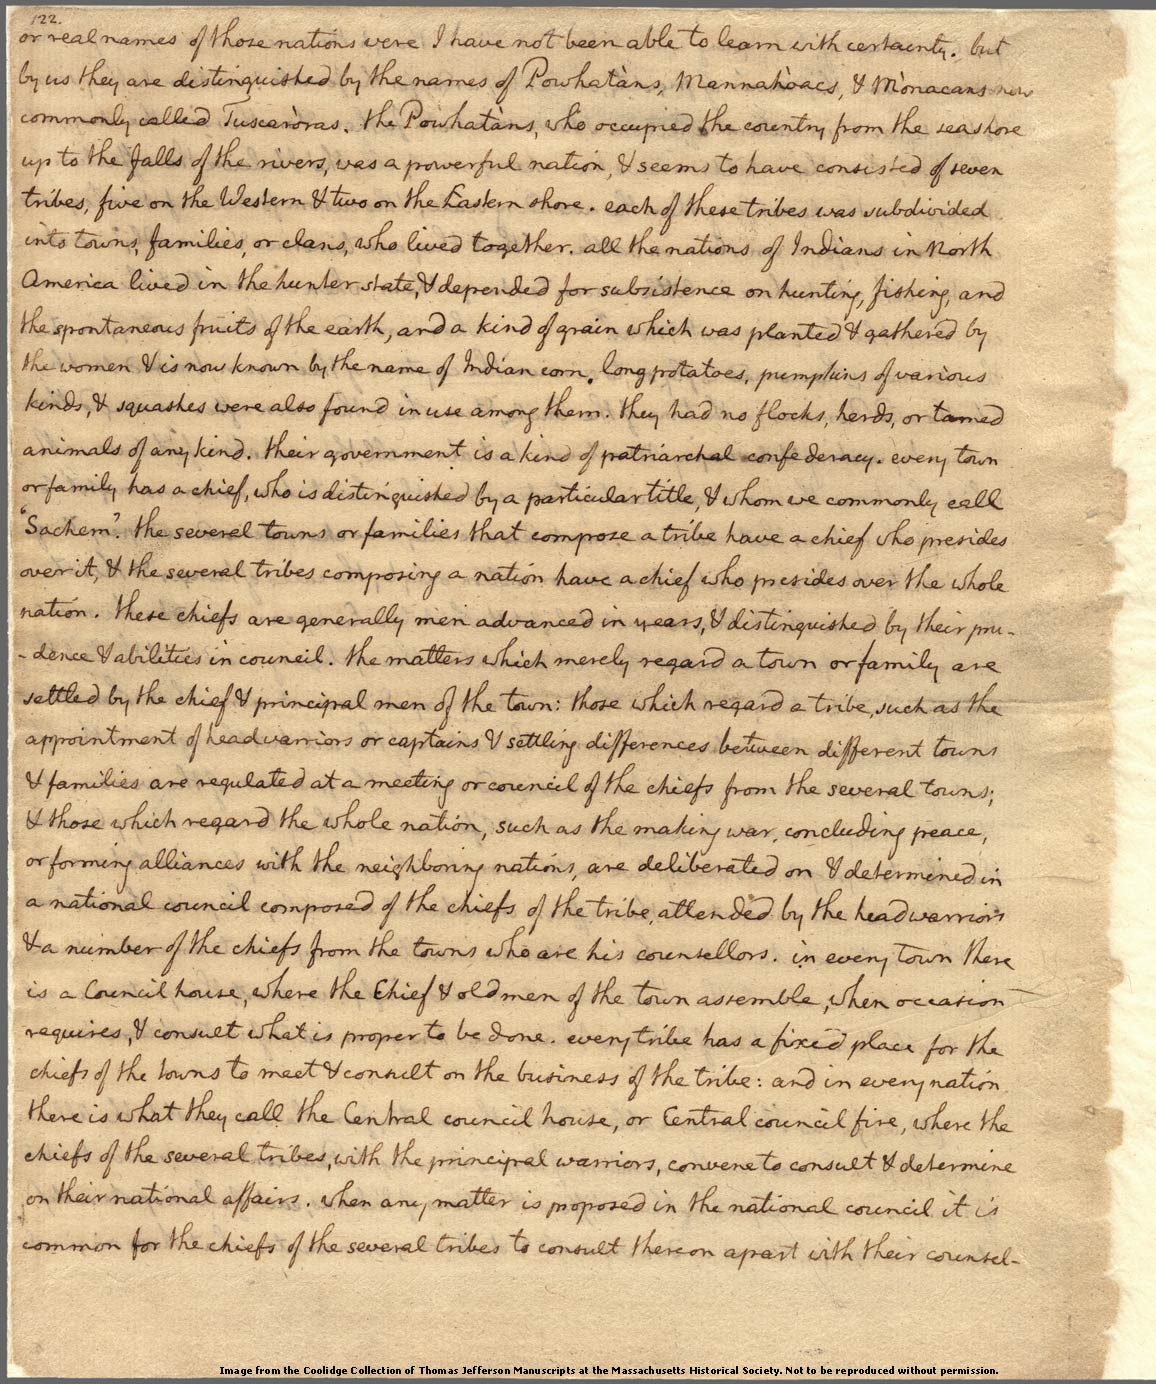 122.
or real names of those nations were I have not been able to learn with certainty. but
by us they are distinguished by the names of Powhatàns, Mannahòacs, & Mònacans now
commonly called Tuscaròras. the Powhatàns, who occupied the country from the sea shore
up to the falls of the rivers, was a powerful nation, & seems to have consisted of seven
tribes, five on the Western & two on the Eastern shore. each of these tribes was subdivided
into towns, families, or clans, who lived together. all the nations of Indians in North
America lived in the hunter state, & depended for subsistence on hunting, fishing, and
the spontaneous fruits of the earth, and a kind of grain which was planted & gathered by
the women & is now known by the name of Indian corn. long potatoes, pumpkins of various
kinds, & squashes were also found in use among them. they had no flocks, herds, or tamed
animals of any kind. their government is a kind of patriarchal confederacy. every town
or family has a chief, who is distinguished by a particular title, & whom we commonly call
'Sachem'. the several towns or families that compose a tribe have a chief who presides
over it, & the several tribes composing a nation have a chief who presides over the whole
nation. these chiefs are generally men advanced in years, & distinguished by their pru-
-dence & abilities in council. the matters which merely regard a town or family are
settled by the chief & principal men of the town: those which regard a tribe, such as the
appointment of head warriors or captains & settling differences between different towns
& families are regulated at a meeting or council of the chiefs from the several towns;
& those which regard the whole nation, such as the making war, concluding peace,
or forming alliances with the neighboring nations, are deliberated on & determined in
a national council composed of the chiefs of the tribe, attended by the head warriors
& a number of the chiefs from the towns who are his counsellors. in every town there
is a Council house, where the Chief & old men of the town assemble, when occasion
requires, & consult what is proper to be done. every tribe has a fixed place for the
chiefs of the towns to meet & consult on the business of the tribe: and in every nation
there is what they call the Central council house, or Central council fire, where the
chiefs of the several tribes, with the principal warriors, convene to consult & determine
on their national affairs. when any matter is proposed in the national council it is
common for the chiefs of the several tribes to consult thereon apart with their counsel-
Image from the Coolidge Collection of Thomas Jefferson Manuscripts at the Massachusetts Historical Society. Not to be reproduced without permission.